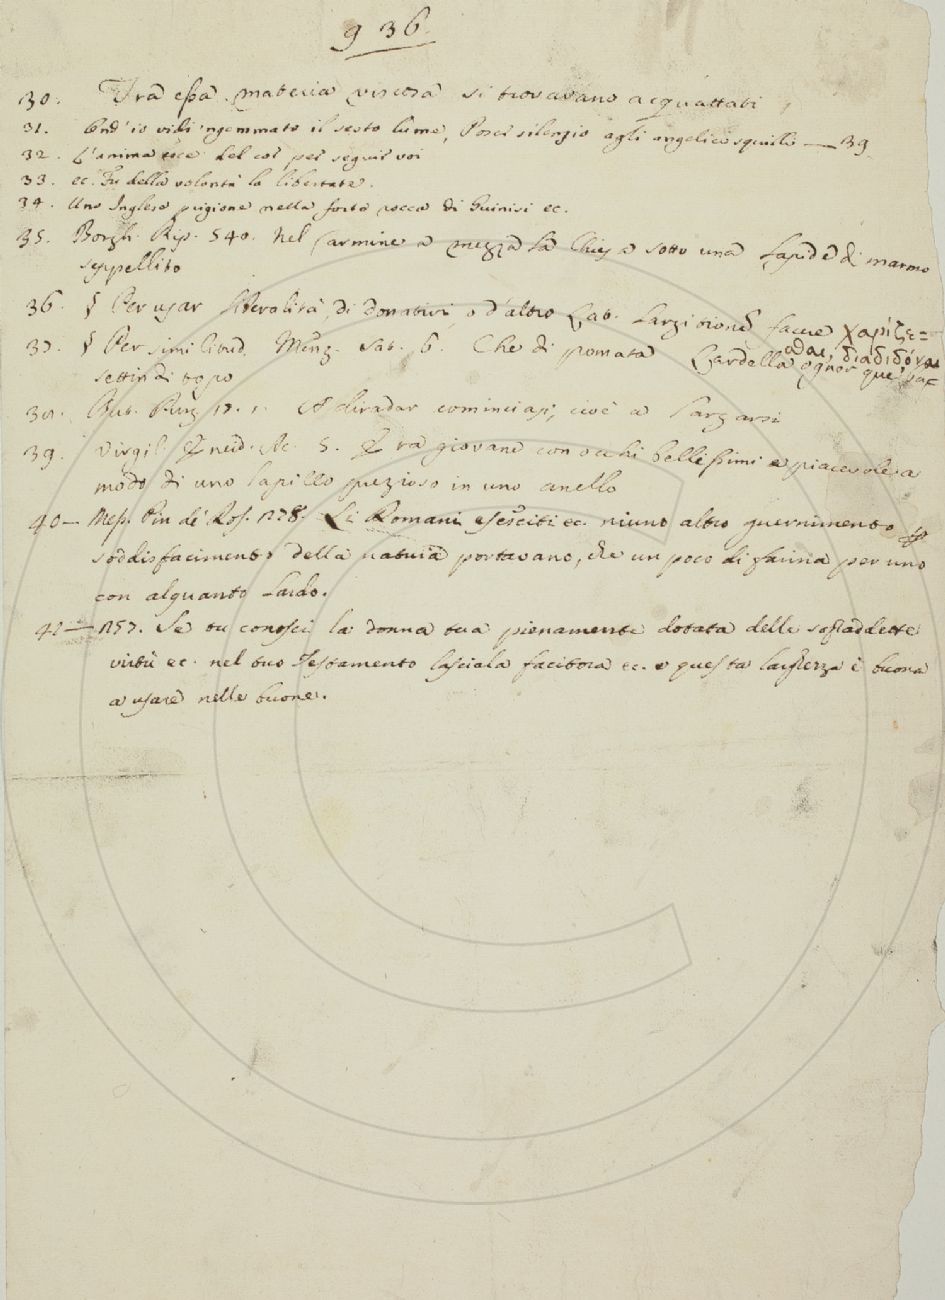 936
30. Tra essa materia viscosa si trovavano acquattati
31. Ond' io vidi 'ngemmato il sesto lume, Poser silenzio agli angelici squilli — 39
32. L'anima esce del cor per seguir voi
33. ec. Fu della volontà la libertate.
34. Uno Inglese prigione nella forte rocca di Guinisi ec.
35. Borgh. Rip. 540. Nel Carmine a mezza la Chiesa sotto una Lapide di marmo
seppellito
36. § Per usar liberalità, di donativi, o d'altro Lat. Largitionem facere χαρίζε=
σθαι, διαδιδόναι
37. § Per similitud. Menz. sat. 6. Che di pomata Lardella ognor que'
settin di topo
38. But. Purg. 17. 1. A diradar cominciasi, cioè a largarsi
39. Virgil. Eneid. M. 5. Era giovane con occhi bellissimi e piacevole a
modo di uno lapillo prezioso in uno anello
40 — Mess. Pin de' Ros. 1278. Li Romani eserciti ec. niuno altro guernimento a
soddisfacimento della natura portavano, che un poco di farina per uno
con alquanto Lardo.
41 — 157. Se tu conosci la donna tua pienamente dotata delle sopraddette
virtù ec. nel tuo Testamento lasciala facitora ec. e questa larghezza è buona
a usare nelle buone.